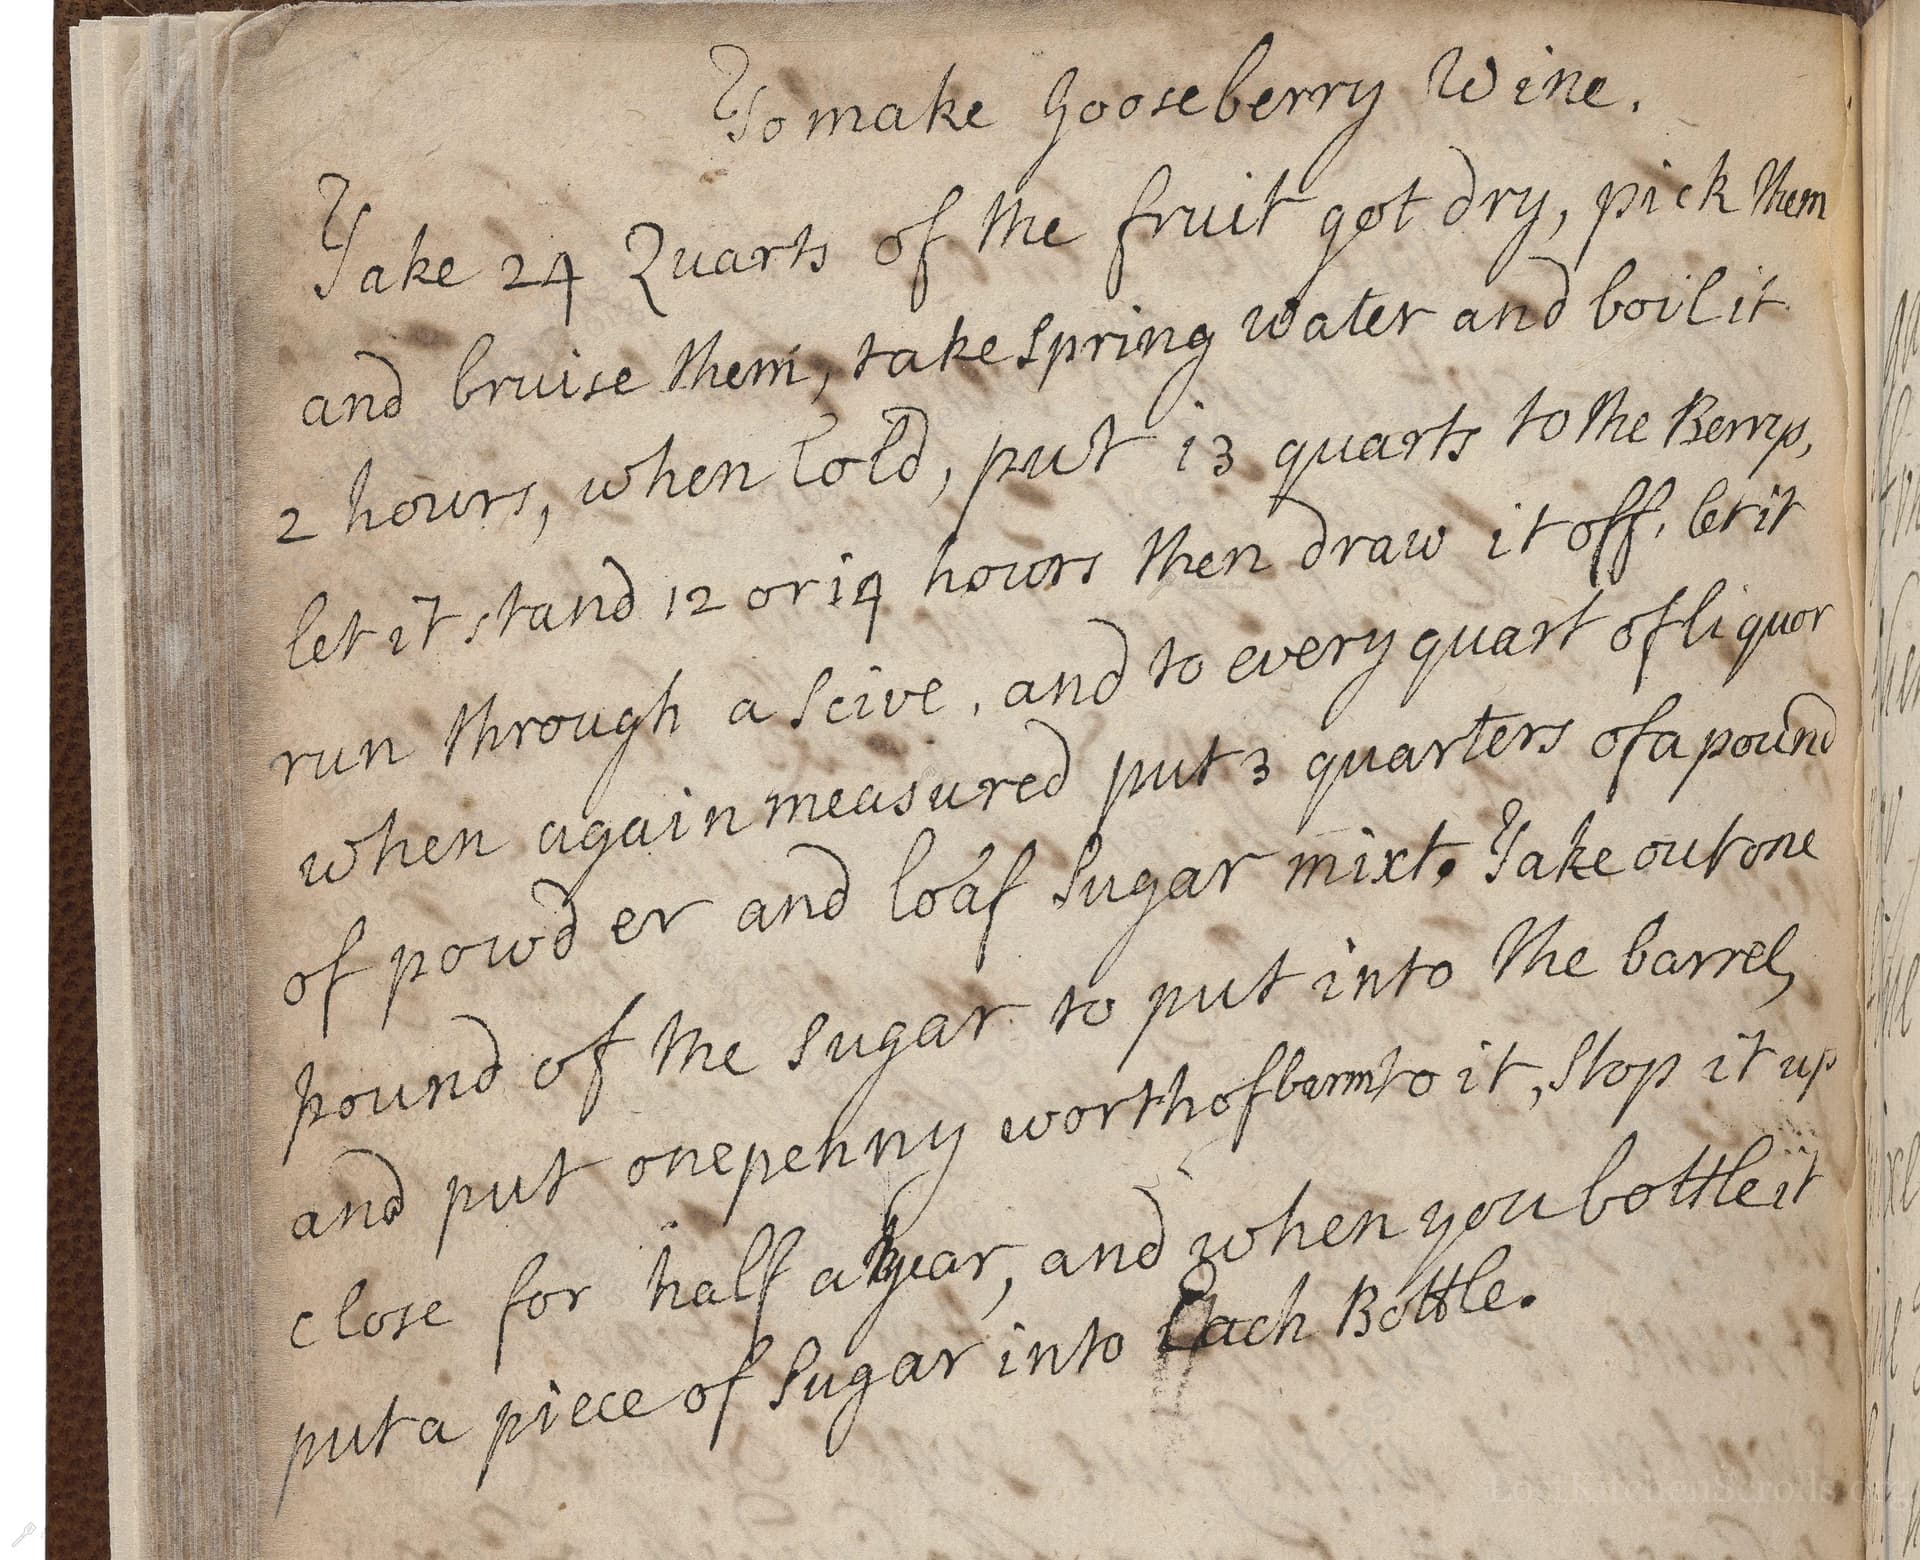 To make Gooseberry Wine.
Take 24 Quarts of the fruit got dry, pick them
and bruise them, take spring water and boil it
2 hours, when Cold, put 13 quarts to the Berrys,
let it stand 12 or 14 hours then draw it off, let it
run through a Scive, and to every quart of liquor
when again measured put 3 quarters of a pound
of powder and loaf Sugar mixt. Take out one
pound of the Sugar to put into the barrel,
and put one penny worth of barm to it, Stop it up
close for half a year, and when you bottle it
put a piece of Sugar into Each Bottle.
LostKitchenScrolls.org